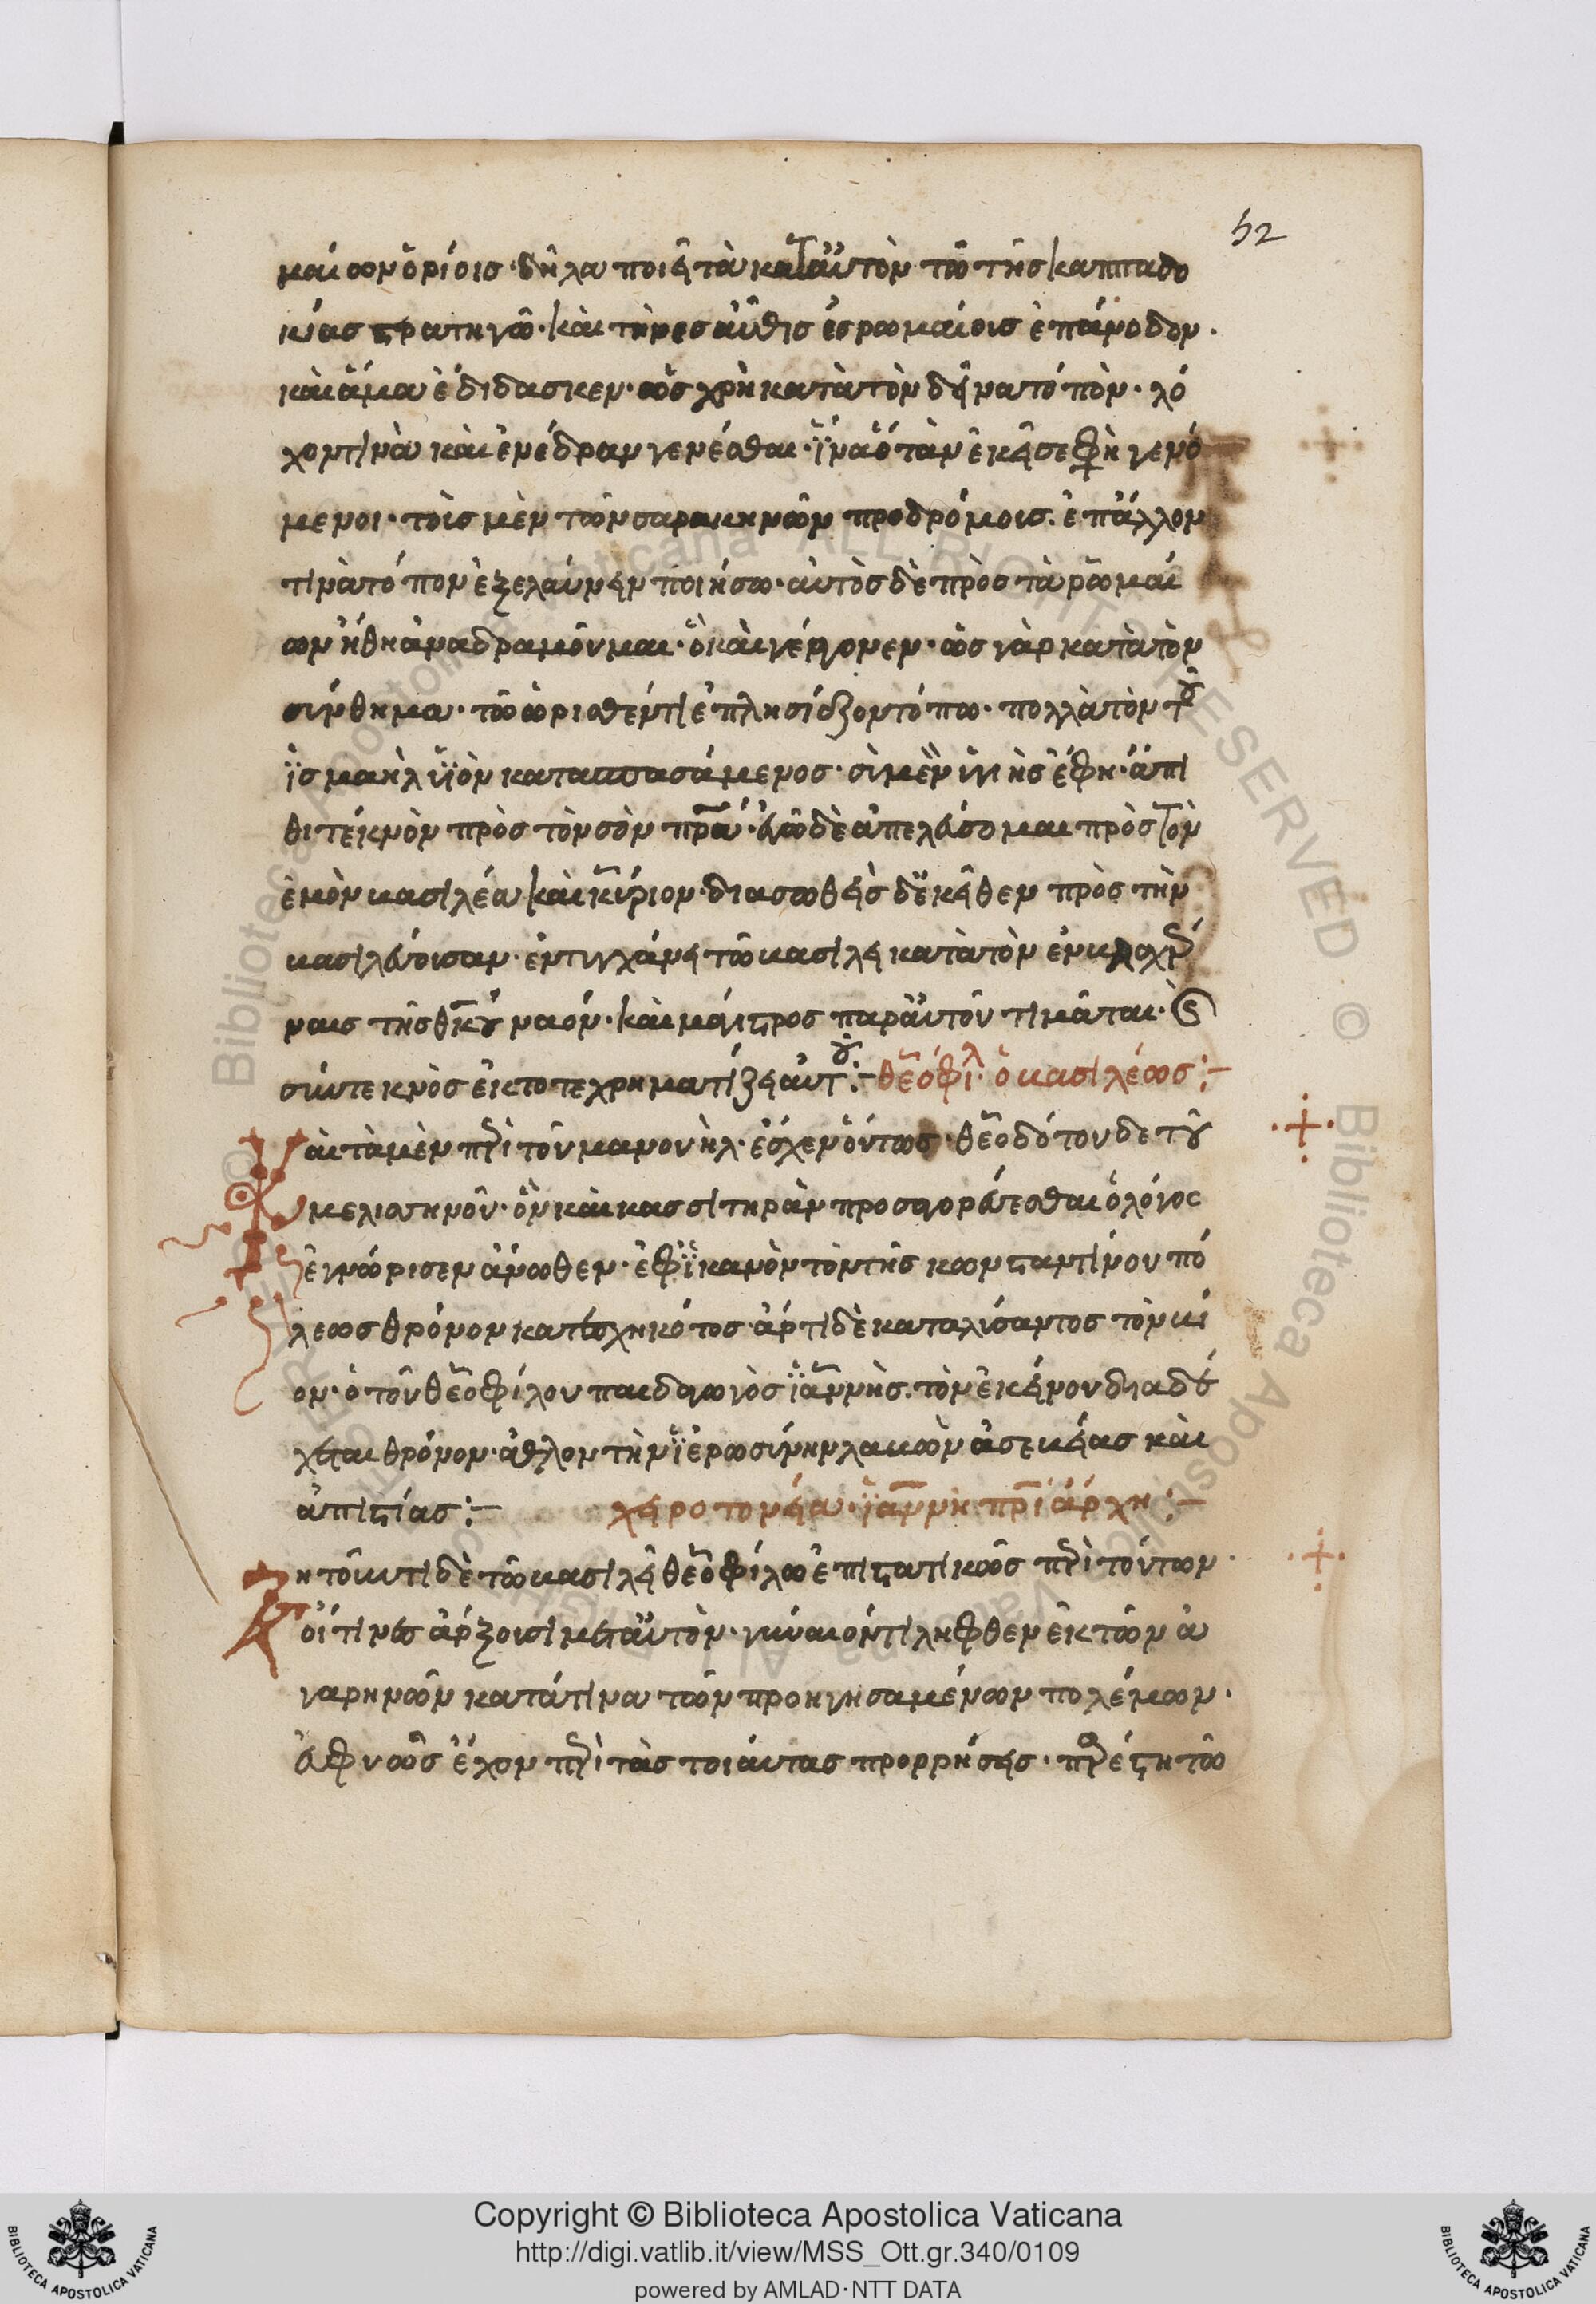 52
μαίων ὁρίοις· δῆλα ποιεῖ τὰ κατ' αὐτὸν τῶ τῆς καππαδο
κίας στρατηγῶ· καὶ τὴν ἐς αὖθις ἐς ῥωμαίοις ἐπάνοδον.
καὶ ἅμα ἐδίδασκεν· ὡς χρὴ κατὰ τὸν δεῖνα τόπον· λό
χον τινὰ καὶ ἐνέδραν γενέσθαι· ἵνα ὅταν ἐκεῖσε φὴ γενό
μενοι· τοῖς μὲν τῶν σαρακηνῶν προδρόμοις· ἐπ' ἄλλον
τινὰ τόπον ἐξελαύνειν ποιήσω· αὐτὸς δὲ πρὸς τὰ ῥωμαί
ων ἤθη ἀναδραμοῦμαι· ὃ καὶ γέγονεν· ὡς γὰρ κατὰ τὸν
σύνθημα· τῶ ὁρισθέντι ἐπλησίαζον τόπω· πολλὰ τὸν τοῦ
ἰσμαὴλ υἱὸν κατασπασάμενος· σὺ μὲν ὑγιὴς ἔφη· ἄπι
θι τέκνον πρὸς τὸν σὸν πρα· ἐγὼ δὲ ἀπελεύσομαι πρὸς τὸν
ἐμὸν βασιλέα καὶ κύριον· διασωθεὶς δ' ἐκεῖθεν πρὸς τὴν
βασιλεύουσαν· ἐντυγχάνει τῶ βασιλεῖ κατὰ τὸν ἐν βλαχέρ
ναις τῆς θκου ναόν· καὶ μάγιστρος παρ' αὐτοῦ τιμᾶται· καὶ
σύντεκνος ἔκτοτε χρηματίζει αὐτοῦ:– θεόφιλ· ὁ βασιλέως:–
καὶ τὰ μὲν περὶ τοῦ μανουὴλ· ἔσχεν οὕτως· θεοδότου δὲ τοῦ
μελισσηνοῦ· ὃν καὶ κασσιτηρὰν προσαγορεύεσθαι ὁ λόγος
ἐγνώρισεν ἄνωθεν· ἐφ' ἱκανὸν τὸν τῆς κωνσταντίνου πό
λεως θρόνον κατεσχηκότος· ἄρτι δὲ καταλύσαντος τὸν βί
ον· ὁ τοῦ θεοφίλου παιδαγωγὸς ἰαννὴς· τὸν ἐκείνου διαδέ
χεται θρόνον· ἆθλον τὴν ἱερωσύνην λαβὼν ἀσεβείας καὶ
ἀπιστίας:– χειροτονεία· ἰαννῆ πρι άρχη:–
ζητοῦντι δὲ τῶ βασιλεῖ θεοφίλω ἐπιστατικῶς περὶ τούτων·
οἵτινες ἄρξουσι μετ' αὐτὸν· γύναιόν τι ληφθὲν ἐκ τῶν ἀ
γαρηνῶν κατά τινα τῶν προηγησαμένων πολέμων·
εὐφυῶς ἔχον περὶ τὰς τοιαύτας προρρήσεις· παρέστη τῶ
Copyright © Biblioteca Apostolica Vaticana
http://digi.vatlib.it/view/MSS_Ott.gr.340/0109
powered by AMLAD·NTT DATA
BIBLIOTECA APOSTOLICA VATICANA
BIBLIOTECA APOSTOLICA VATICANA